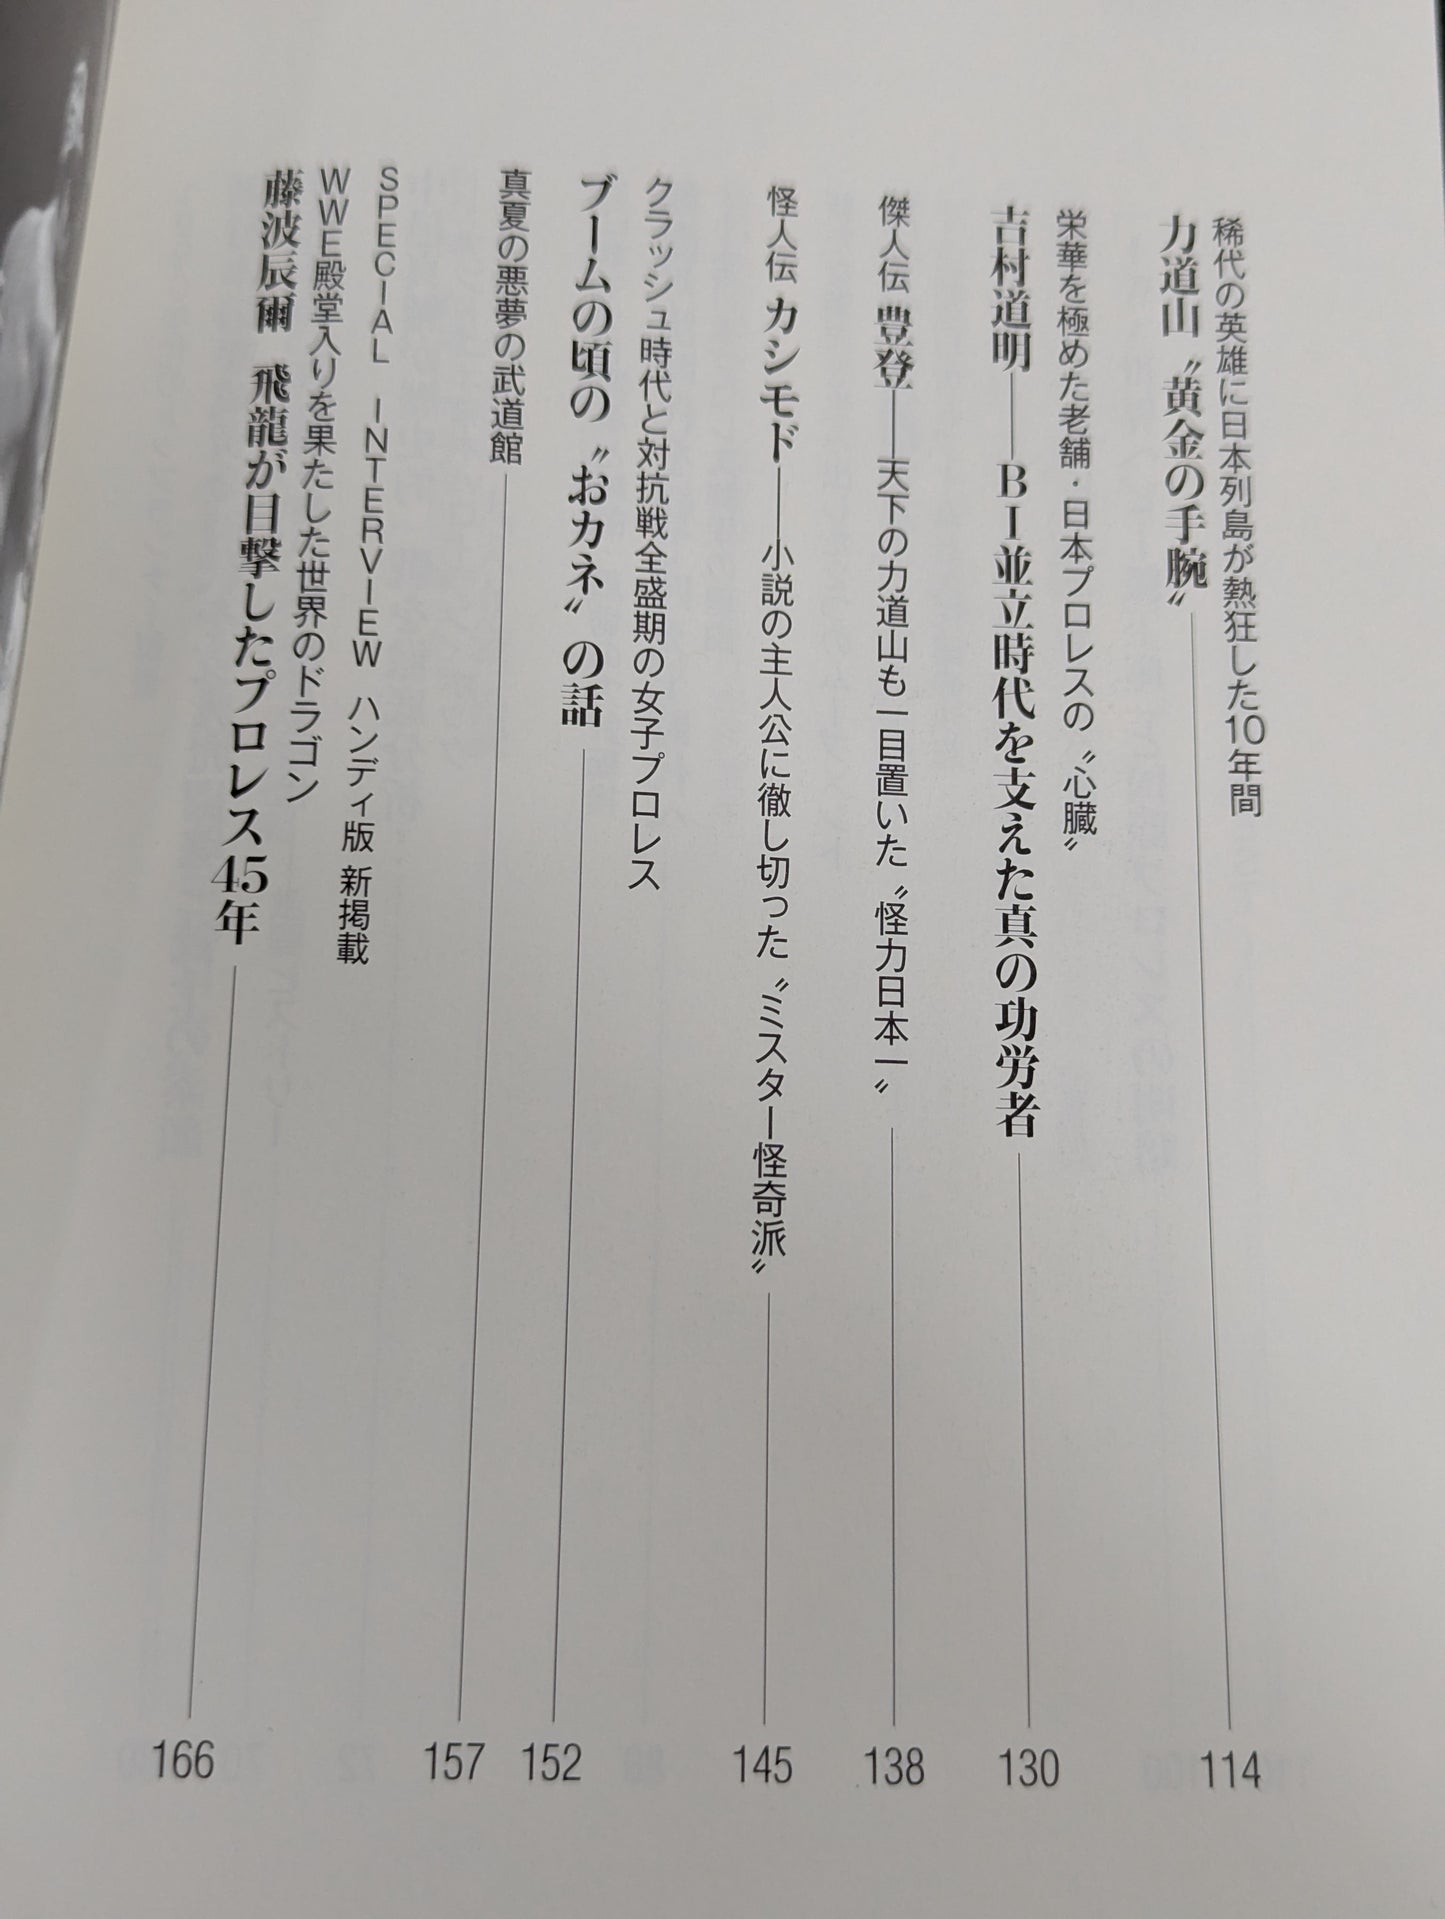 稀代の英雄に日本列島が熱狂した10年間
力道山〝黄金の手腕〟
114
栄華を極めた老舗・日本プロレスの〝心臓〟
吉村道明――BI並立時代を支えた真の功労者
130
傑人伝 豊登――天下の力道山も一目置いた〝怪力日本一〟
138
怪人伝 カシモド――小説の主人公に徹し切った〝ミスター怪奇派〟
145
クラッシュ時代と対抗戦全盛期の女子プロレス
ブームの頃の〝おカネ〟の話
152
真夏の悪夢の武道館
157
SPECIAL INTERVIEW ハンディ版 新掲載
WWE殿堂入りを果たした世界のドラゴン
藤波辰爾 飛龍が目撃したプロレス45年
166